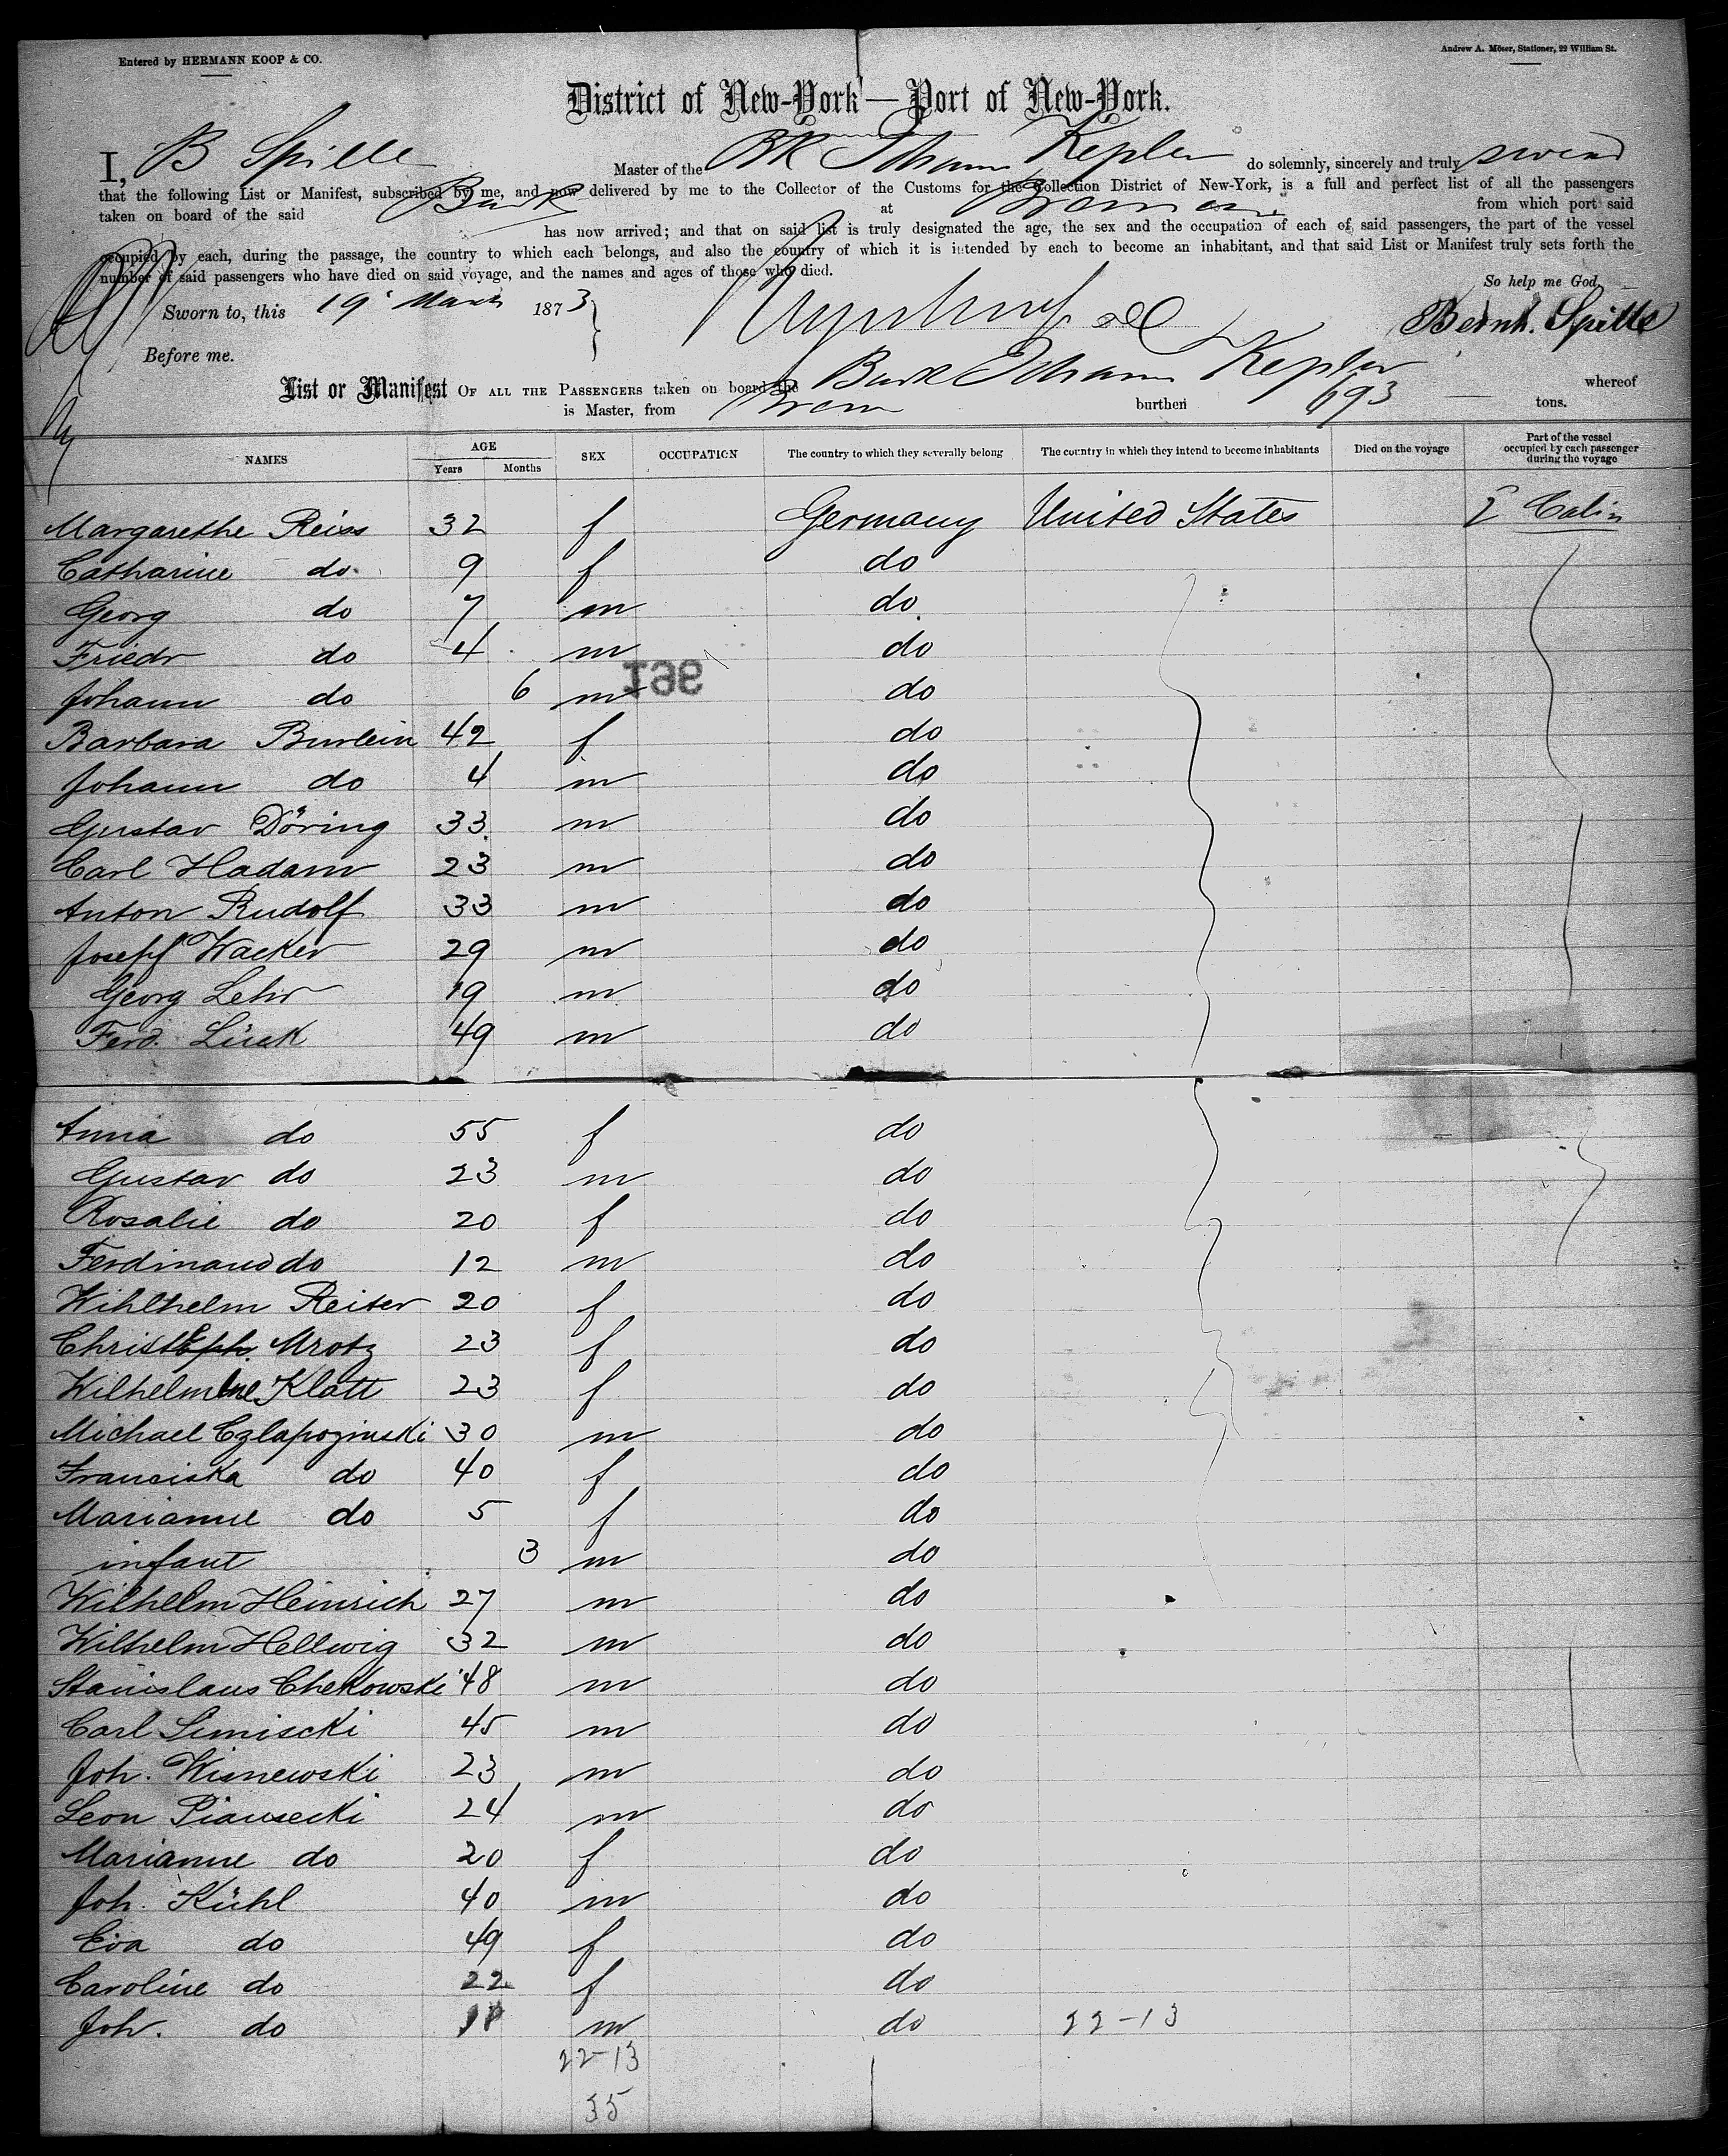 Entered by HERMANN KOOP & CO.
Andrew A. Möser, Stationer, 22 William St.
District of New-York — Port of New-York.
I, B Spille Master of the BK Johann Kepler do solemnly, sincerely and truly swear
that the following List or Manifest, subscribed by me, and now delivered by me to the Collector of the Customs for the Collection District of New-York, is a full and perfect list of all the passengers
taken on board of the said Bark at Bremen from which port said
has now arrived; and that on said list is truly designated the age, the sex and the occupation of each of said passengers, the part of the vessel
occupied by each, during the passage, the country to which each belongs, and also the country of which it is intended by each to become an inhabitant, and that said List or Manifest truly sets forth the
number of said passengers who have died on said voyage, and the names and ages of those who died.
So help me God
Sworn to, this 19 March 1873
Bernh. Spille
Before me.
List or Manifest OF ALL THE PASSENGERS taken on board the Bark Johann Kepler whereof
is Master, from Bremen burthen 693 tons.
NAMES AGE Years Months SEX OCCUPATION The country to which they severally belong The country in which they intend to become inhabitants Died on the voyage Part of the vessel occupied by each passenger during the voyage
Margarethe Reiss 32 f Germany United States Cabin
Catharine do 9 f do
Georg do 7 m do
Friedr do 4 m do
Johann do 6 m do
196
Barbara Burlein 42 f do
Johann do 4 m do
Gustav Döring 33 m do
Carl Hadam 23 m do
Anton Rudolf 33 m do
Joseph Wacker 29 m do
Georg Lehr 19 m do
Ferd. Lück 49 m do
Anna do 55 f do
Gustav do 23 m do
Rosalie do 20 f do
Ferdinand do 12 m do
Wihlhelm Reiter 20 f do
Mrotz 23 f do
Wilhelmine Klatt 23 f do
Michael Czlapozinski 30 m do
Franciska do 40 f do
Marianne do 5 f do
infant 3 m do
Wilhelm Heinrich 27 m do
Wilhelm Hellwig 32 m do
Stanislaus Chekowski 48 m do
Carl Simiscki 45 m do
Joh. Wisnewski 23 m do
Leon Piansecki 24 m do
Marianne do 20 f do
Joh. Kühl 40 m do
Eva do 49 f do
Caroline do 22 f do
Joh. do m do 22-13
22-13
35